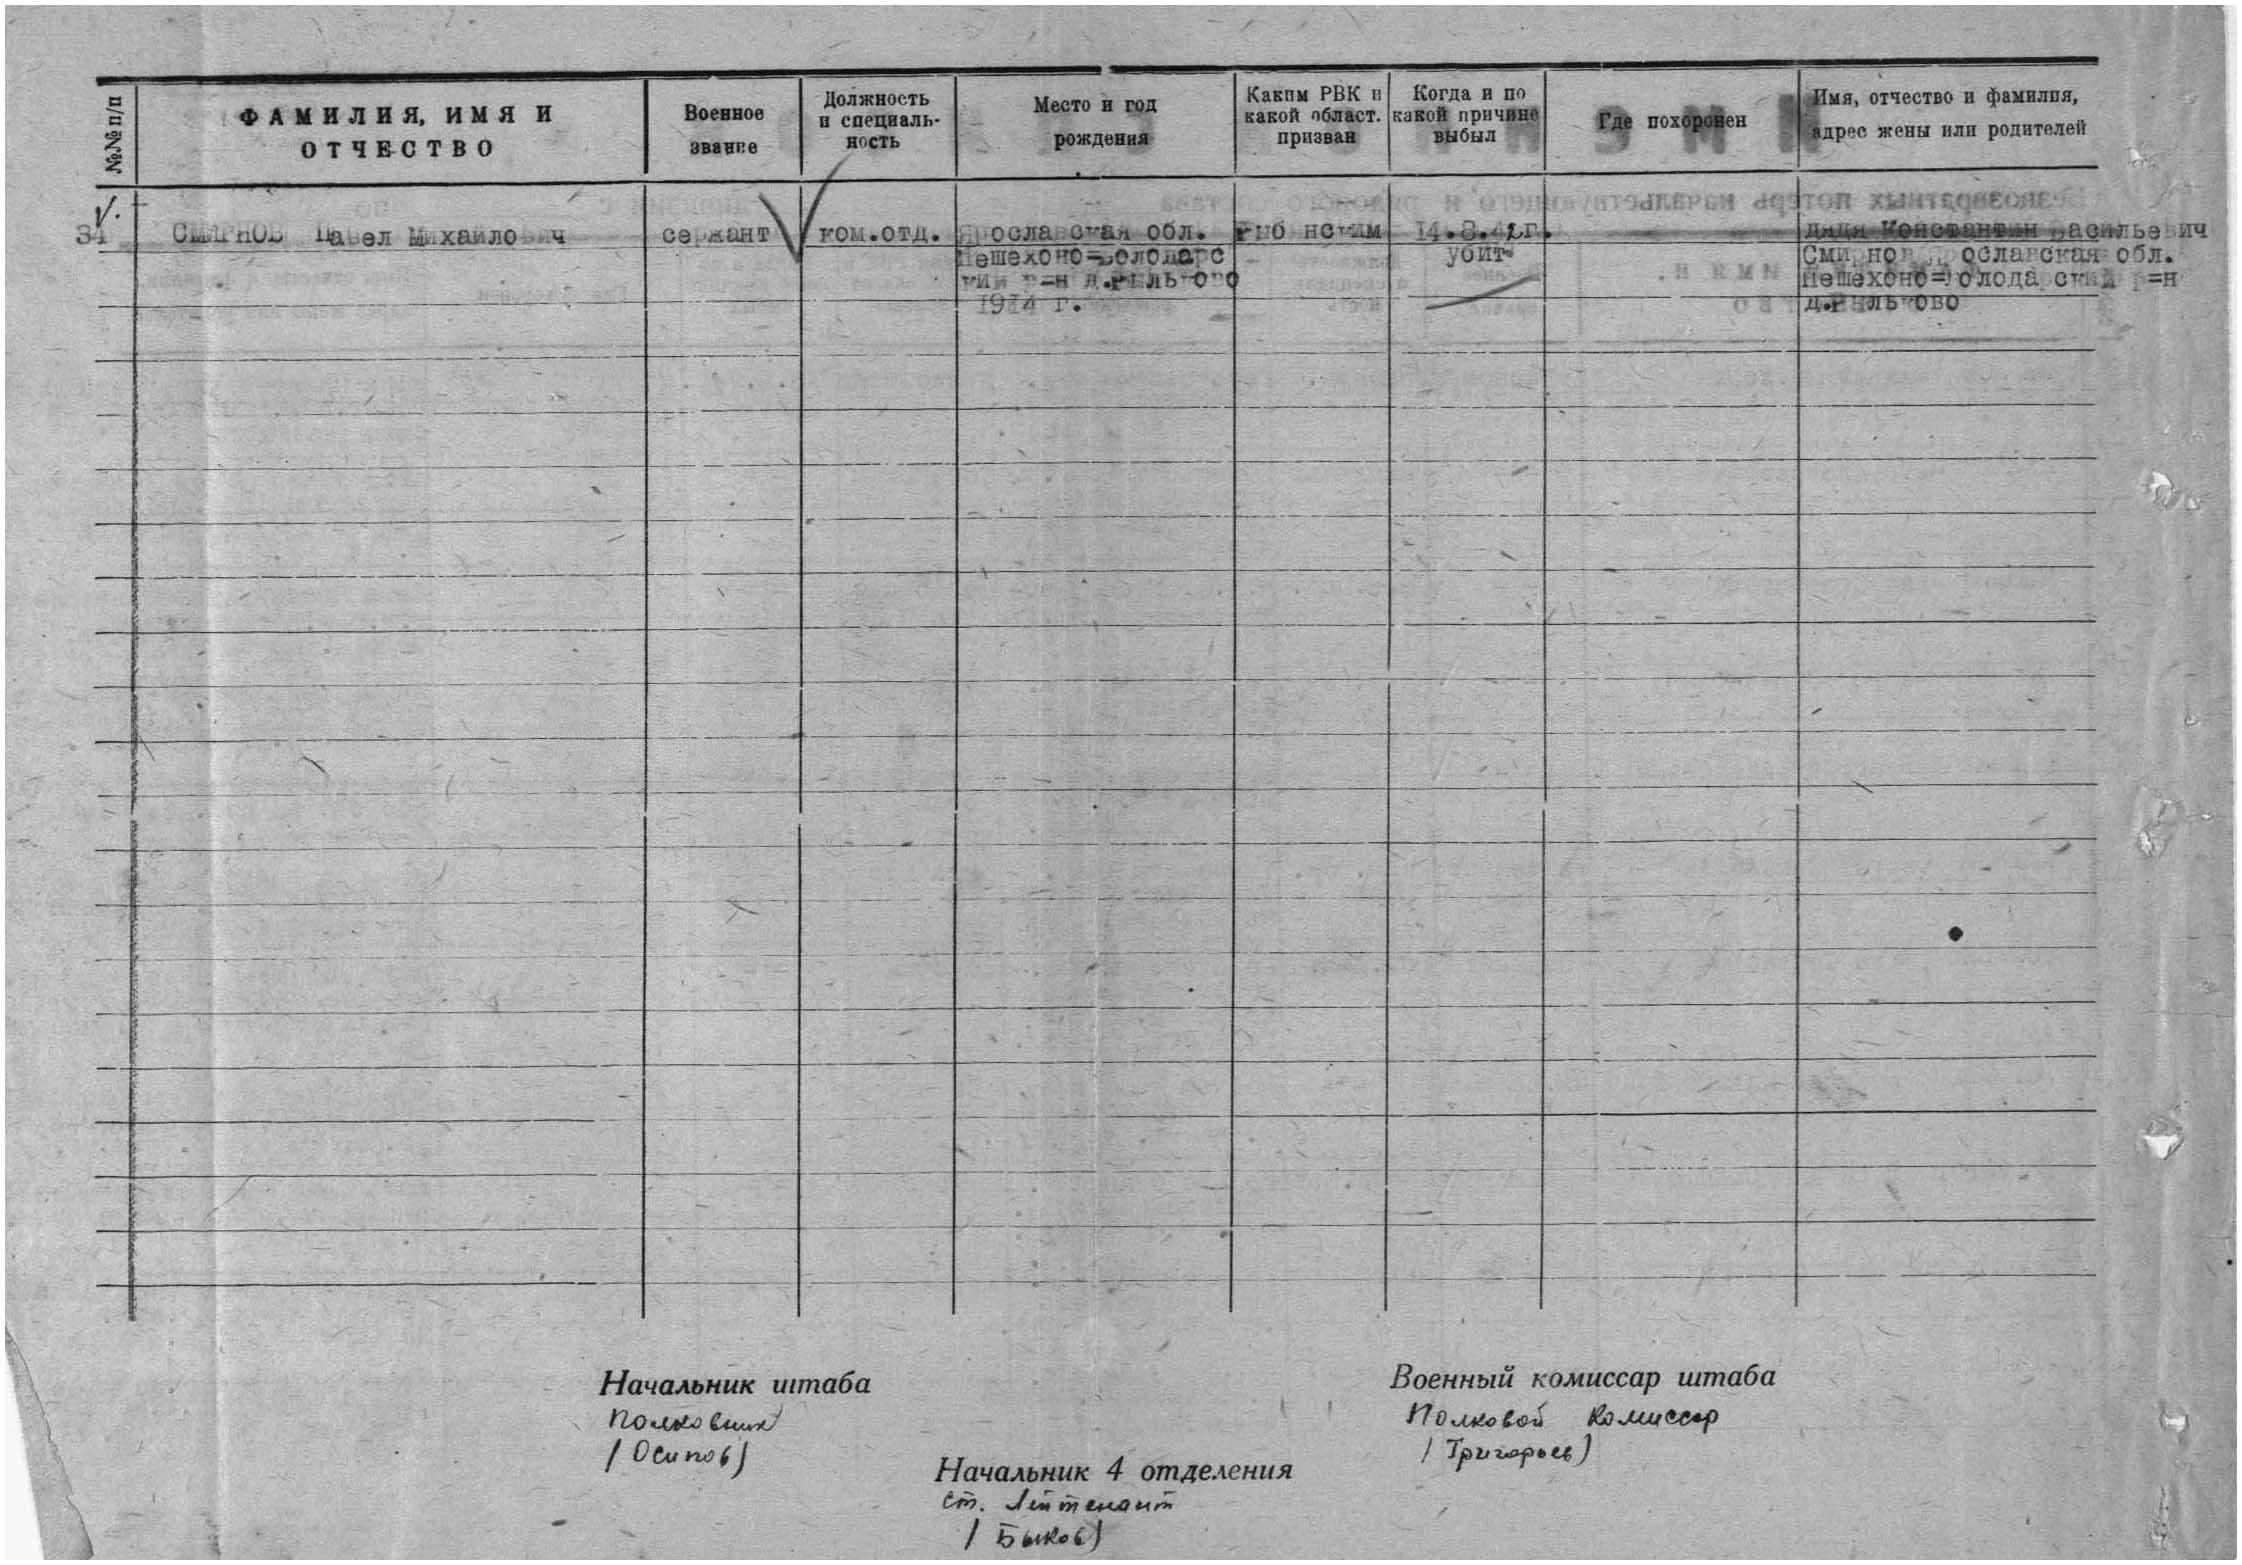 №№ п/п
ФАМИЛИЯ, ИМЯ И
ОТЧЕСТВО
Военное
звание
Должность
и специаль-
ность
Место и год
рождения
Каким РВК и
какой област.
призван
Когда и по
какой причине
выбыл
Где похоронен
Имя, отчество и фамилия,
адрес жены или родителей
34 СМИРНОВ Павел Михайлович
сержант
ком.отд.
Ярославская обл.
Пешехоно=Володарс
кий р=н д.Рыльково
1914 г.
Рыб нским
14.8.42г.
убит
дядя Константин Васильевич
Смирнов Ярославская обл.
Пешехоно=Володарский р=н
д.Рыльково
Начальник штаба
Полковник
/Осипов/
Военный комиссар штаба
Полковой Комиссар
/Григорьев/
Начальник 4 отделения
ст. Лейтенант
/Быков/